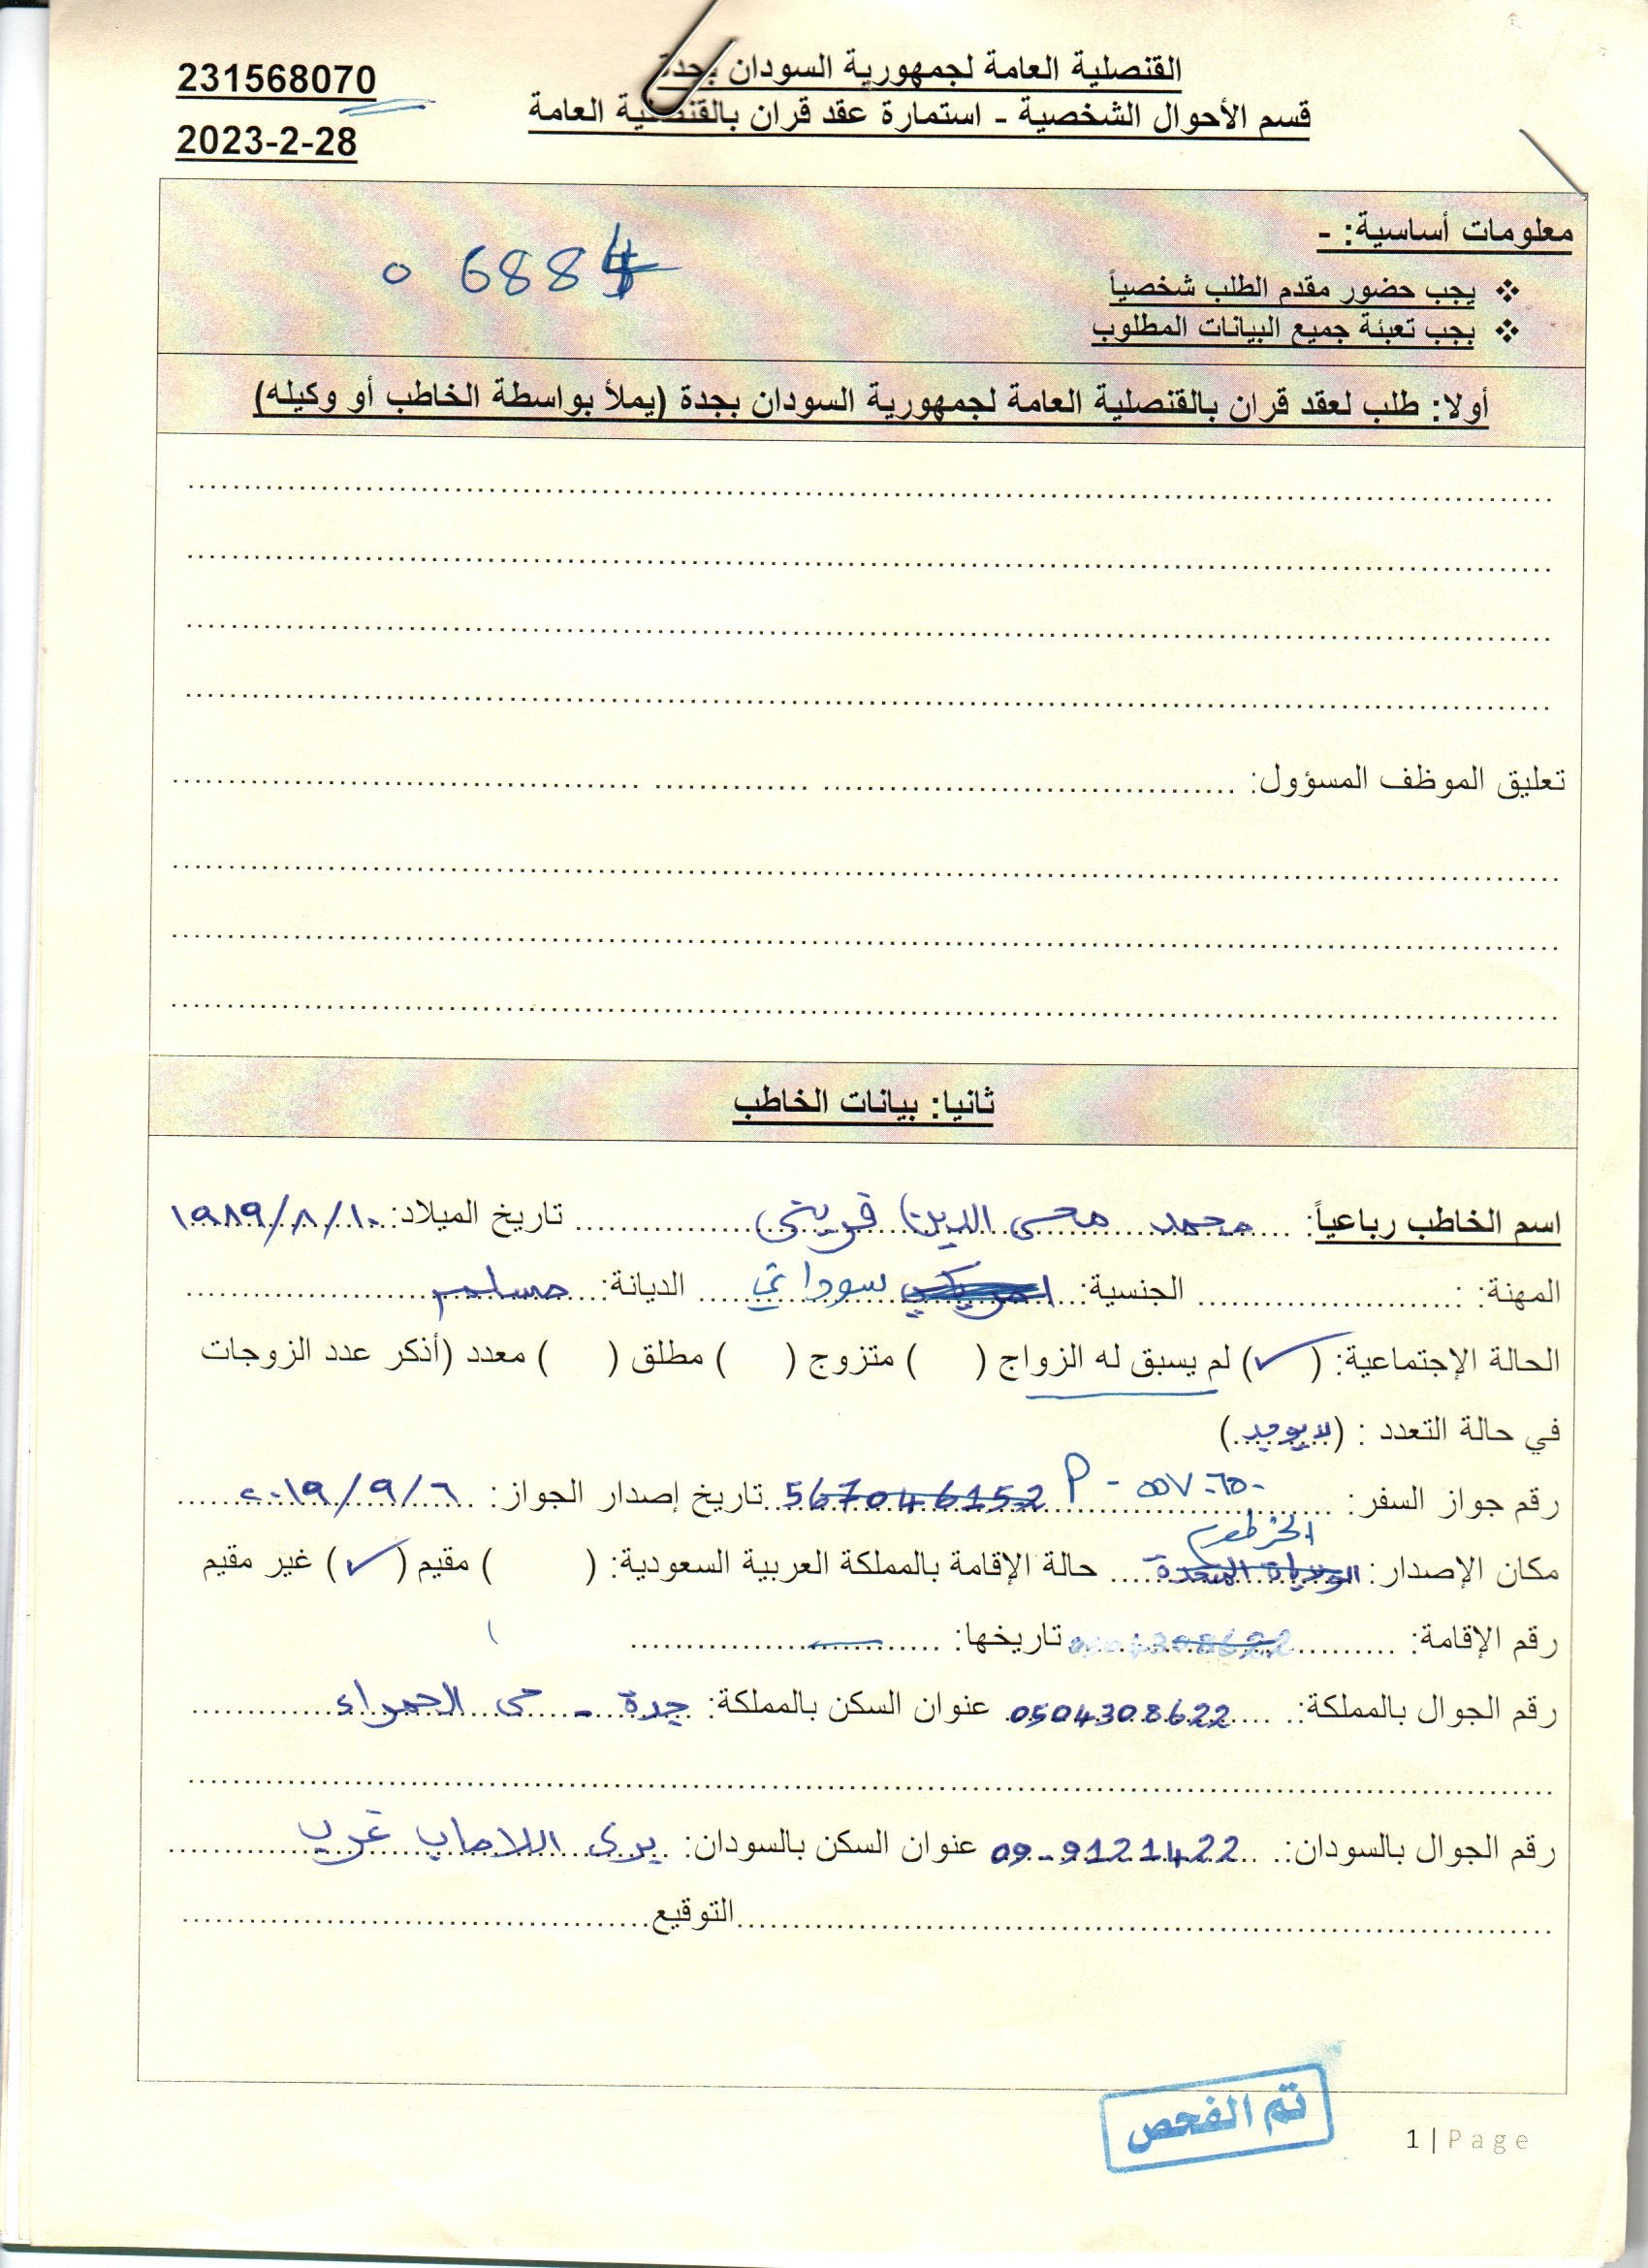 القنصلية العامة لجمهورية السودان بجدة
231568070
قسم الأحوال الشخصية - استمارة عقد قران بالقنصلية العامة
2023-2-28
معلومات أساسية: -
0 6884
❖ يجب حضور مقدم الطلب شخصياً
❖ يجب تعبئة جميع البيانات المطلوب
أولا: طلب لعقد قران بالقنصلية العامة لجمهورية السودان بجدة (يملأ بواسطة الخاطب أو وكيله)
تعليق الموظف المسؤول:
ثانيا: بيانات الخاطب
اسم الخاطب رباعياً: محمد محى الدين قرينى تاريخ الميلاد: ١٩٨٩/٨/١٠
المهنة: : الجنسية: امريكي سوداني الديانة: مسلم
الحالة الإجتماعية: (✓) لم يسبق له الزواج ( ) متزوج ( ) مطلق ( ) معدد (أذكر عدد الزوجات
في حالة التعدد : (لا يوجد)
رقم جواز السفر: 567046152 P - ٥٥٧٠٦٥٠ تاريخ إصدار الجواز: ٢٠١٩/٩/٦
مكان الإصدار: الولايات المتحدة الخرطوم حالة الإقامة بالمملكة العربية السعودية: ( ) مقيم (✓) غير مقيم
رقم الإقامة: 0504308622 تاريخها:
رقم الجوال بالمملكة: 0504308622 عنوان السكن بالمملكة: جدة - حى الحمراء
رقم الجوال بالسودان: 09-9121422 عنوان السكن بالسودان: برى اللاماب غرب
التوقيع
تم الفحص
1 | Page